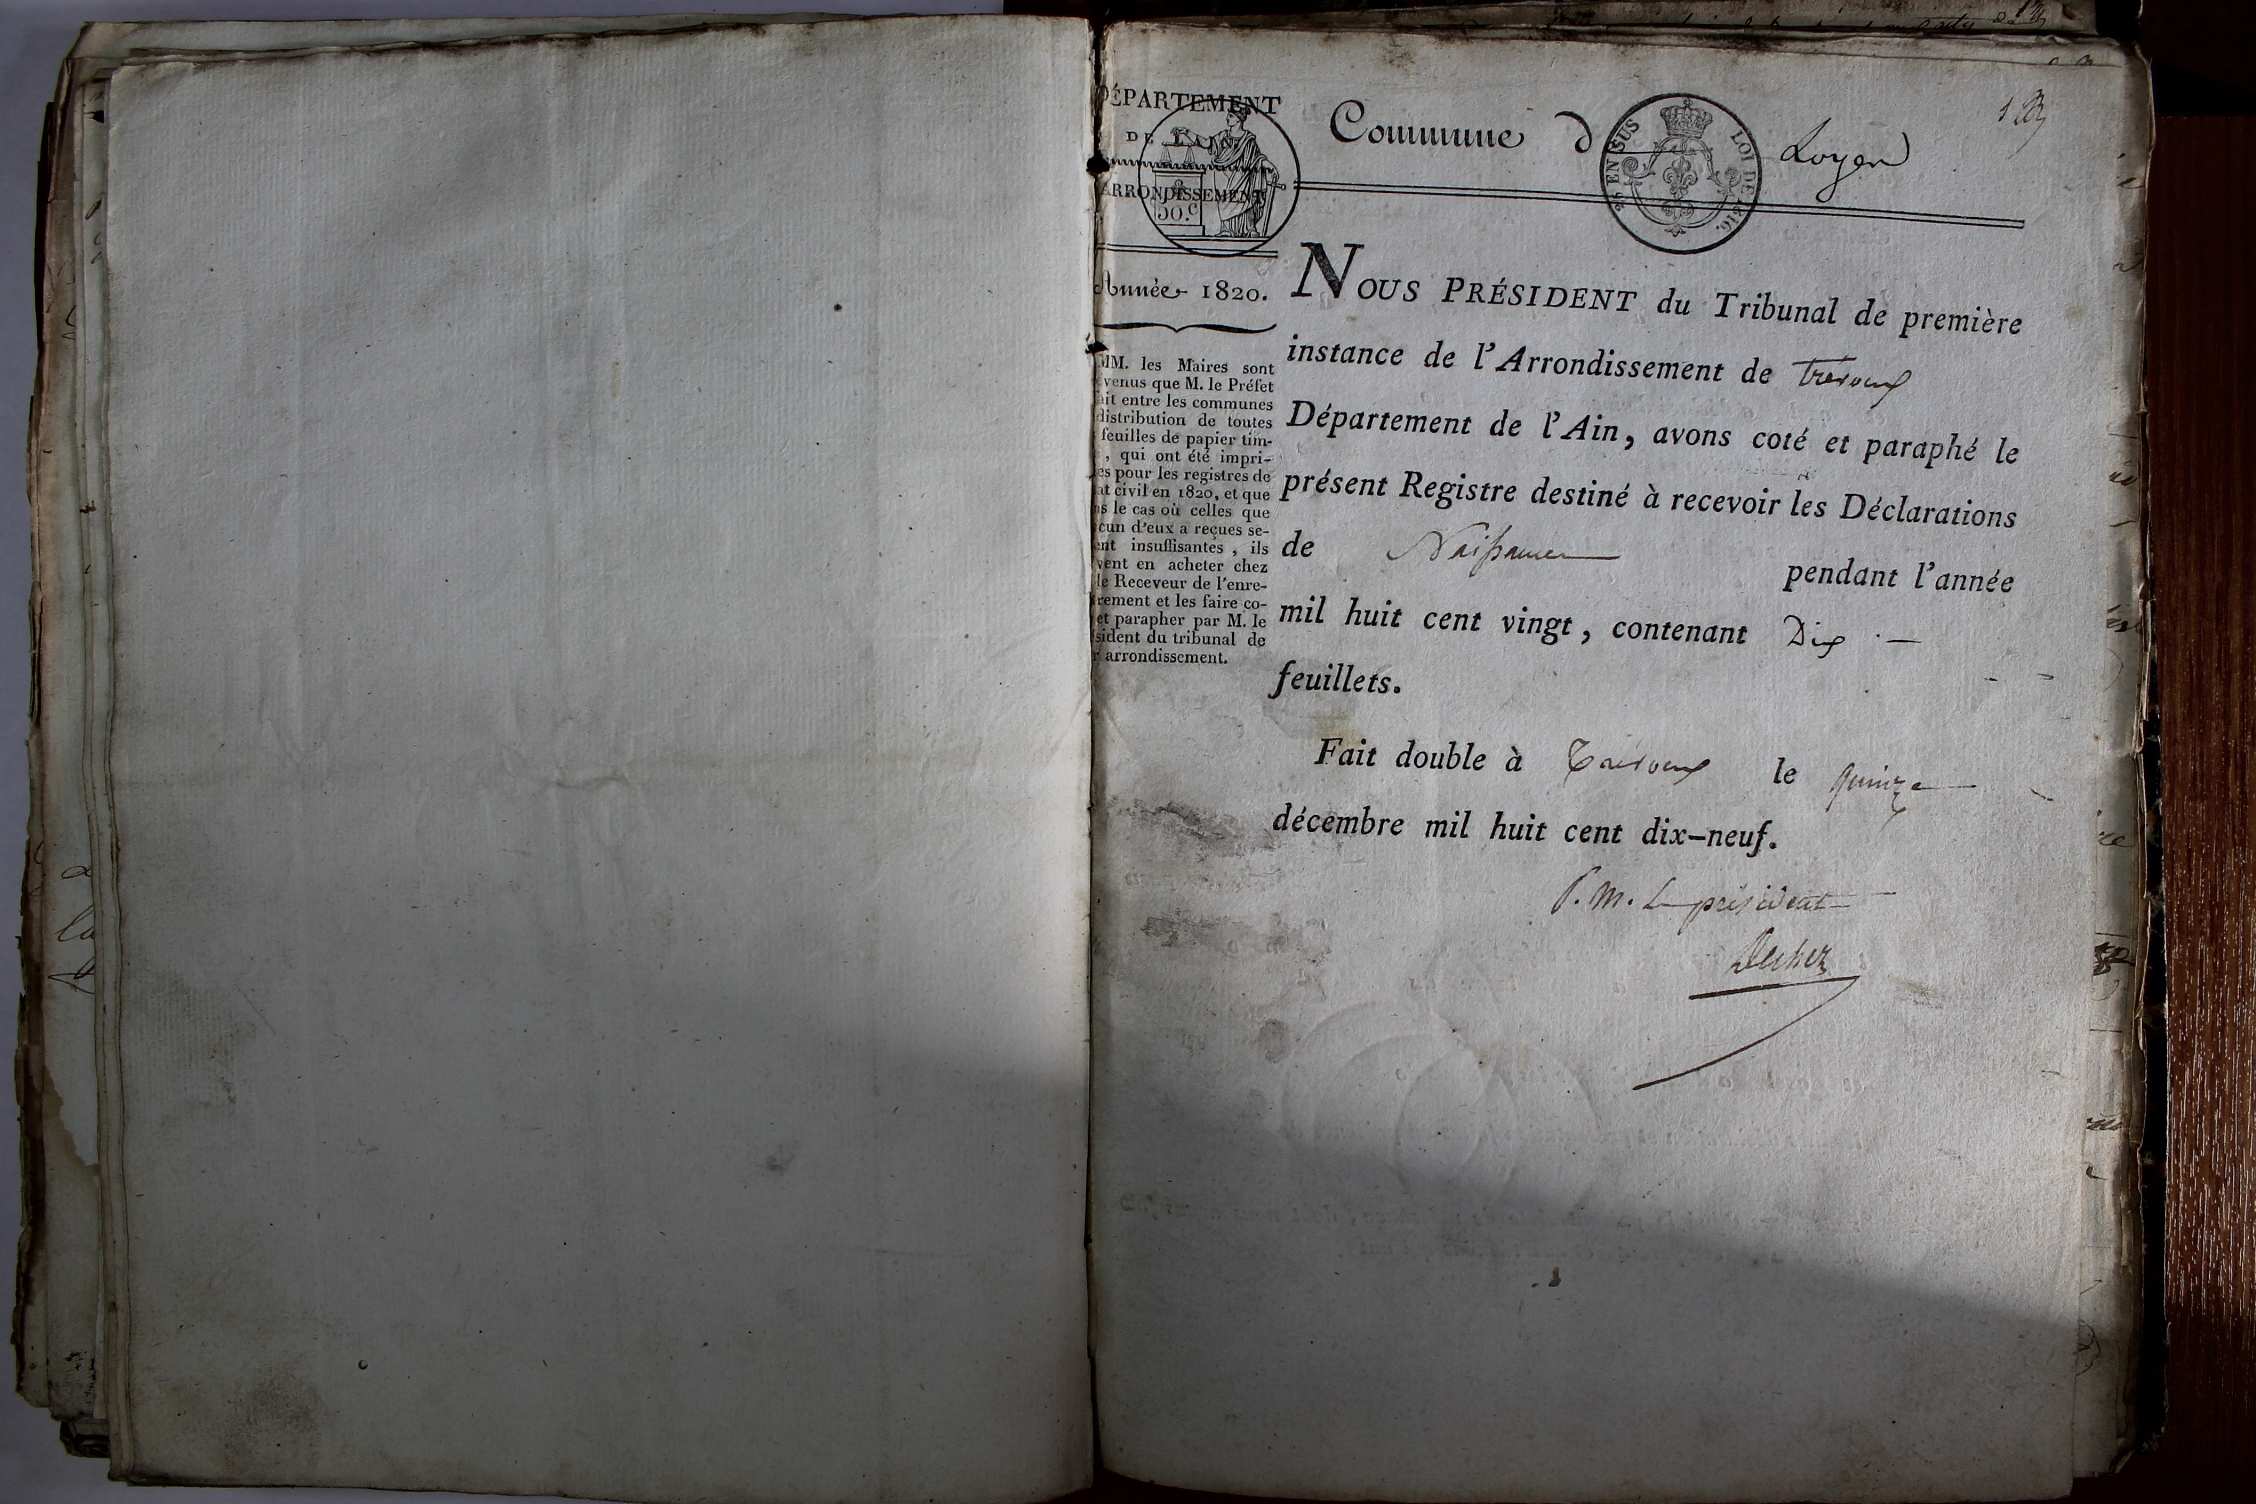 DÉPARTEMENT
DE L'AIN
ARRONDISSEMENT
50.C
Commune d
EN SUS
LOI DE 1816.
Loyen
Année 1820.
MM. les Maires sont
venus que M. le Préfet
ait entre les communes
distribution de toutes
feuilles de papier tim-
, qui ont été impri-
es pour les registres de
at civil en 1820, et que
ns le cas où celles que
cun d'eux a reçues se-
ent insuffisantes, ils
vent en acheter chez
le Receveur de l'enre-
rement et les faire co-
et parapher par M. le
sident du tribunal de
r arrondissement.
NOUS PRÉSIDENT du Tribunal de première
instance de l'Arrondissement de Trévoux
Département de l'Ain, avons coté et paraphé le
présent Registre destiné à recevoir les Déclarations
de Naissances pendant l'année
mil huit cent vingt, contenant Dix
feuillets.
Fait double à Trévoux le quinze
décembre mil huit cent dix-neuf.
P. M. Le président